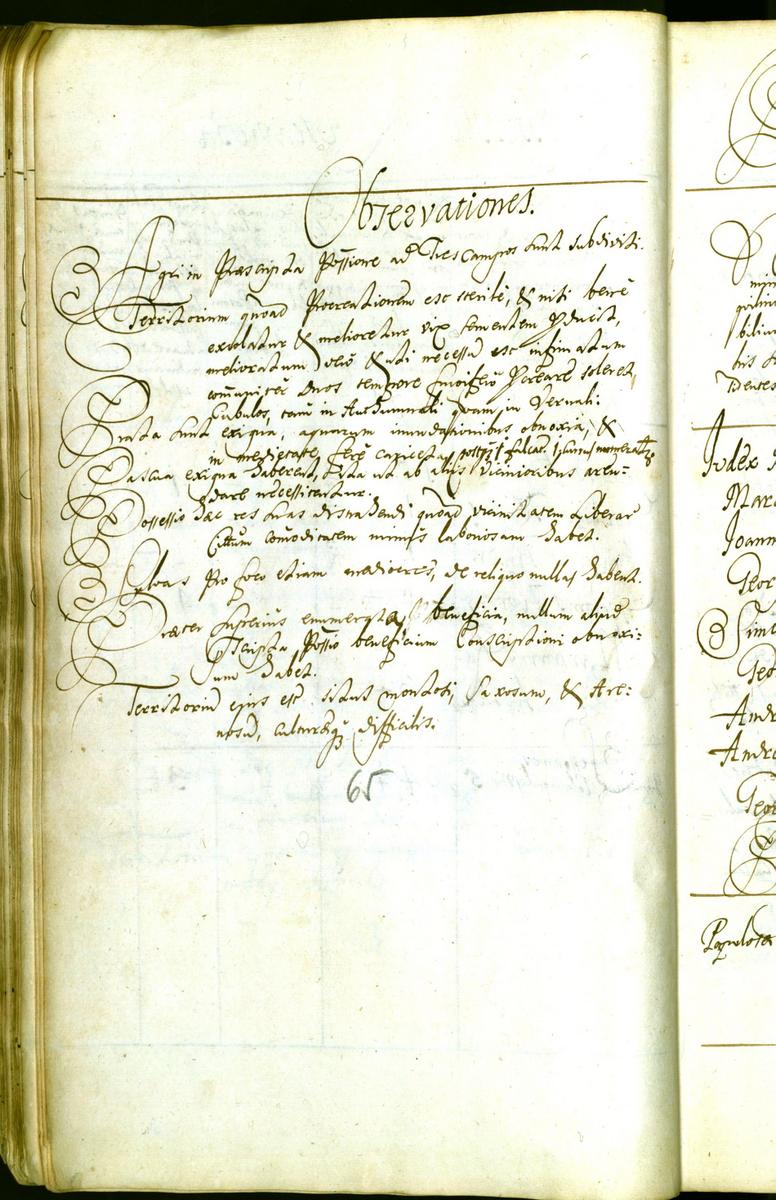 Observationes.
Agri in Praescripta Possione ad Tres Campos sunt subdivisi.
Territorium quoad Procreationem est sterile, & nisi bene
excolatur & melioretur vix sementem producit,
melioratum vero & uti necessum est infimatum
communiter duos tempore procreare soleret,
Cubulos, tam in Autumnali quam in Vernali.
Prata sunt exigua, aquarum inundationibus obnoxia, &
in medietate, fere capiesta, falcat.
Pascua exigua haberent, ita ut ab aliis Vicinioribus aren=
dare necessitentur.
Possessio haec res suas distrahendi quoad vicinitatem Liberar
Cittum comoditatem minus laboriosam habet.
Sylvas pro foco etiam mediocres, de reliquo nullas habent.
Praeter inferius emmergta beneficia, nullum aliud
Scripta Possio beneficium Conscriptioni obnoxi=
um habet.
Territoriu ejus est situs montosi, Saxosum, & Are=
nosu, culturaeq difficilis.
65
Judex
Joann
Geor
Geo
Andr
Andre
Geor
Populosa